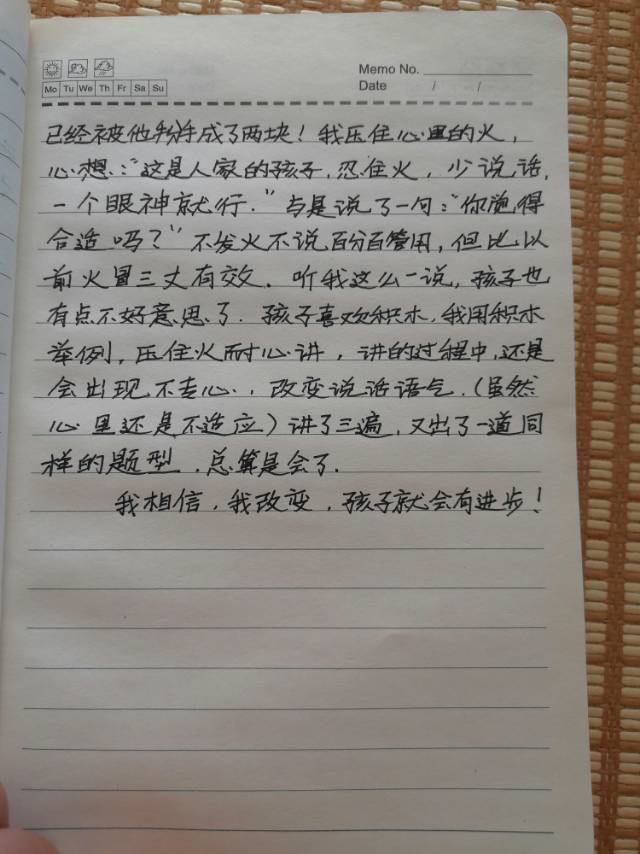 Memo No.
Mo Tu We Th Fr Sa Su
Date / /
已经被他掰成了两块！我压住心里的火，
心想：“这是人家的孩子，忍住火，少说话，
一个眼神就行.”与是说了一句：“你觉得
合适吗？”不发火不说百分百管用，但比以
前火冒三丈有效.听我这么一说，孩子也
有点不好意思了.孩子喜欢积木，我用积木
举例，压住火耐心讲，讲的过程中，还是
会出现不专心，改变说话语气.（虽然
心里还是不适应）讲了三遍，又出了一道同
样的题型.总算是会了.
我相信，我改变，孩子就会有进步！